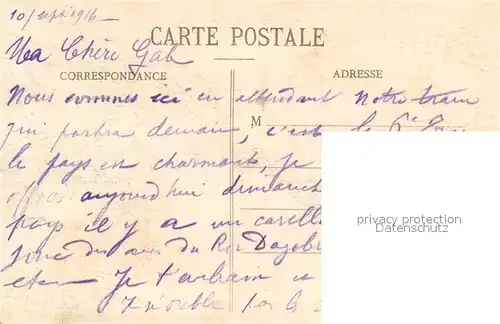 10/sept 1916
CARTE POSTALE
Ma Chère Gab
CORRESPONDANCE
ADRESSE
Nous sommes ici en attendant notre train
M
qui partira demain, c'est le 6e
le pays est charmant, je
aujourd'hui dimanche
pays il y a un
joue des airs du Roi Dagob
Je t'embrasse
n'oublie pas
privacy protection
Datenschutz